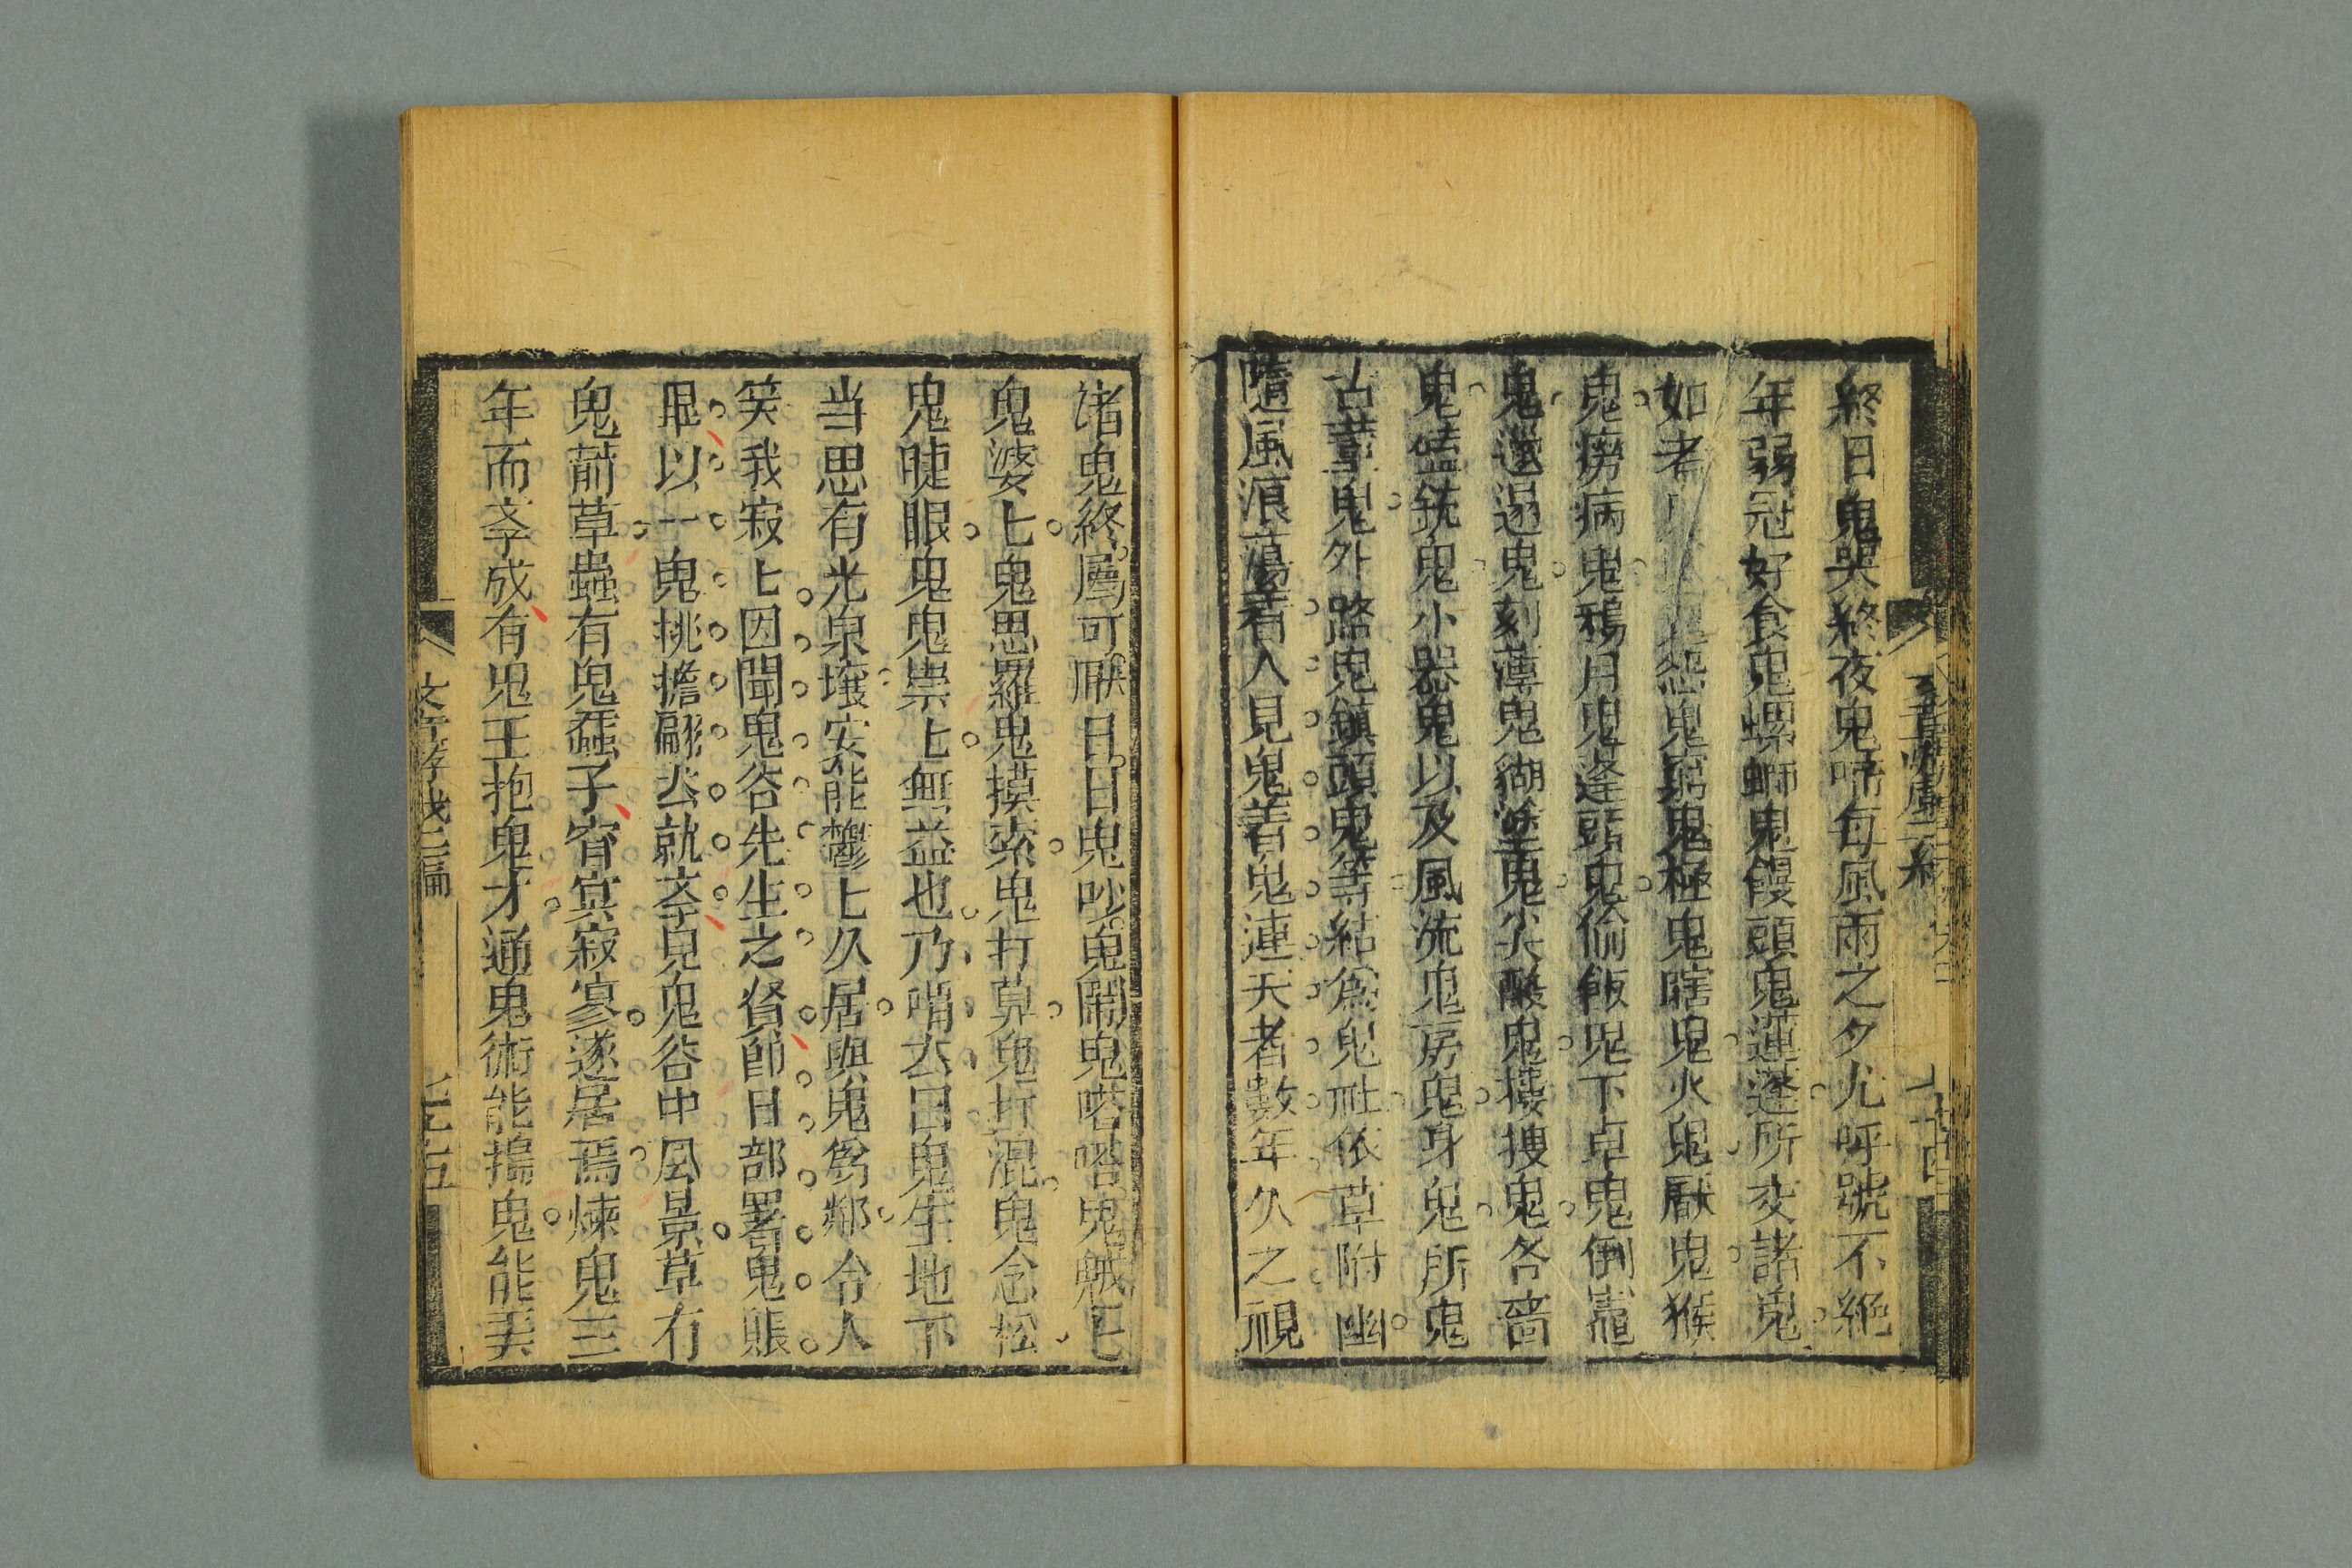 終日鬼哭終夜鬼啼每風雨之夕尤呼號不絕
年弱冠好食鬼螺螄鬼饅頭鬼蓮蓬所交諸鬼
如者 怨鬼窮鬼極鬼瞎鬼火鬼厭鬼猴
鬼癆病鬼鴉月鬼逢頭鬼偷飯鬼下卓鬼倒竈
鬼邋遢鬼刻薄鬼糊塗鬼尖酸鬼摟搜鬼各嗇
鬼磕銃鬼小器鬼以及風流鬼房鬼身鬼所鬼
古董鬼外路鬼鎮頭鬼等結為鬼社依草附幽
隨風浪蕩着人見鬼着鬼連天者數年久之視
诸鬼終屬可厭目日鬼吵鬼鬧鬼嗒嗒鬼
鬼婆七鬼思羅鬼摸索鬼打算鬼打混鬼念松
鬼睫眼鬼鬼祟上無益也乃喟去曰鬼生地下
当思有光泉壤安能鬱七久居與鬼為鄰令人
笑我寂上因聞鬼谷先生之賢即日部署鬼賬
鬼以一鬼挑擔翩去就李見鬼谷中風景草有
鬼萷草蟲有鬼蝨子窅冥寂寥遂居焉煉鬼三
年而李成有鬼王抱鬼才通鬼術能搗鬼能弄